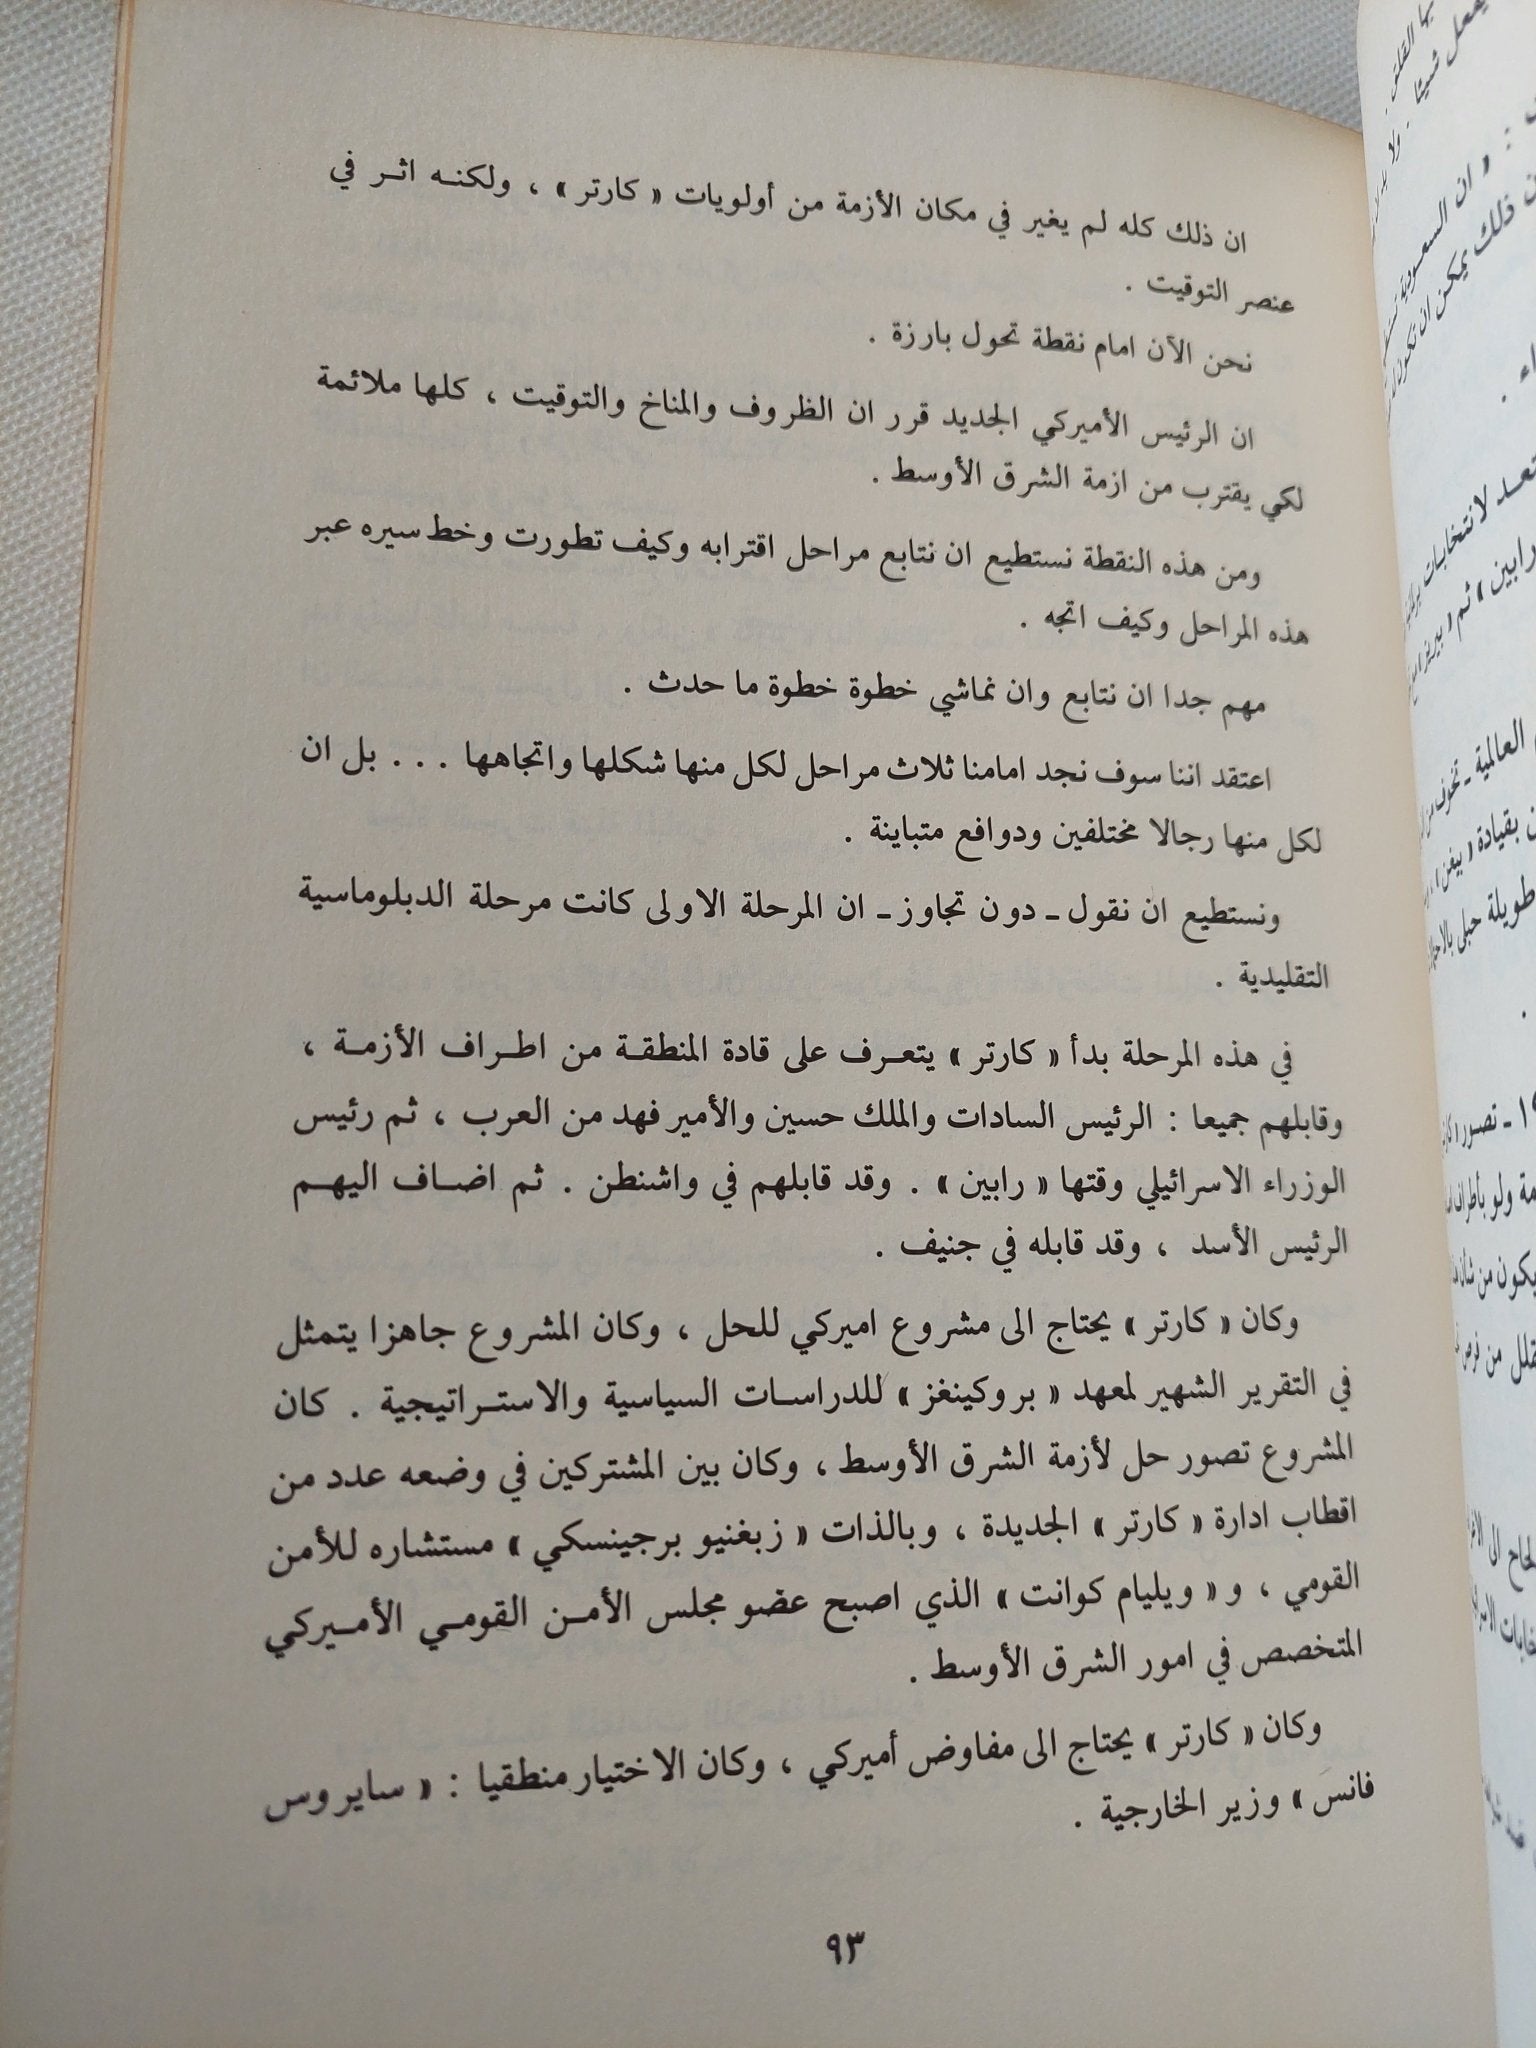 ان ذلك كله لم يغير في مكان الأزمة من أولويات « كارتر » ، ولكنه اثر في
عنصر التوقيت .
نحن الآن امام نقطة تحول بارزة .
ان الرئيس الأميركي الجديد قرر ان الظروف والمناخ والتوقيت ، كلها ملائمة
لكي يقترب من ازمة الشرق الأوسط .
ومن هذه النقطة نستطيع ان نتابع مراحل اقترابه وكيف تطورت وخط سيره عبر
هذه المراحل وكيف اتجه .
مهم جدا ان نتابع وان نماشي خطوة خطوة ما حدث .
اعتقد اننا سوف نجد امامنا ثلاث مراحل لكل منها شكلها واتجاهها . . . بل ان
لكل منها رجالا مختلفين ودوافع متباينة .
ونستطيع ان نقول ـ دون تجاوز ـ ان المرحلة الاولى كانت مرحلة الدبلوماسية
التقليدية .
في هذه المرحلة بدأ « كارتر » يتعرف على قادة المنطقة من اطراف الأزمة ،
وقابلهم جميعا : الرئيس السادات والملك حسين والأمير فهد من العرب ، ثم رئيس
الوزراء الاسرائيلي وقتها « رابين » . وقد قابلهم في واشنطن . ثم اضاف اليهم
الرئيس الأسد ، وقد قابله في جنيف .
وكان « كارتر » يحتاج الى مشروع اميركي للحل ، وكان المشروع جاهزا يتمثل
في التقرير الشهير لمعهد « بروكينغز » للدراسات السياسية والاستراتيجية . كان
المشروع تصور حل لأزمة الشرق الأوسط ، وكان بين المشتركين في وضعه عدد من
اقطاب ادارة « كارتر » الجديدة ، وبالذات « زبغنيو برجينسكي » مستشاره للأمن
القومي ، و « ويليام كوانت » الذي اصبح عضو مجلس الأمن القومي الأميركي
المتخصص في امور الشرق الأوسط .
وكان « كارتر » يحتاج الى مفاوض أميركي ، وكان الاختيار منطقيا : « سايروس
فانس » وزير الخارجية .
٩٣
يها القلق .
يفعل شيئا . ولا
: « ان السعودية
ن ذلك يمكن ان تكون
اء .
تعد لانتخابات
رابين » ثم « بيريز »
العالمية ـ تخوف من
ن بقيادة « بيغن »
طويلة حبلى
ـ تصور « كارتر
مة ولو بأطراف
يكون من شأن
قلل من فرص
لحاح الى